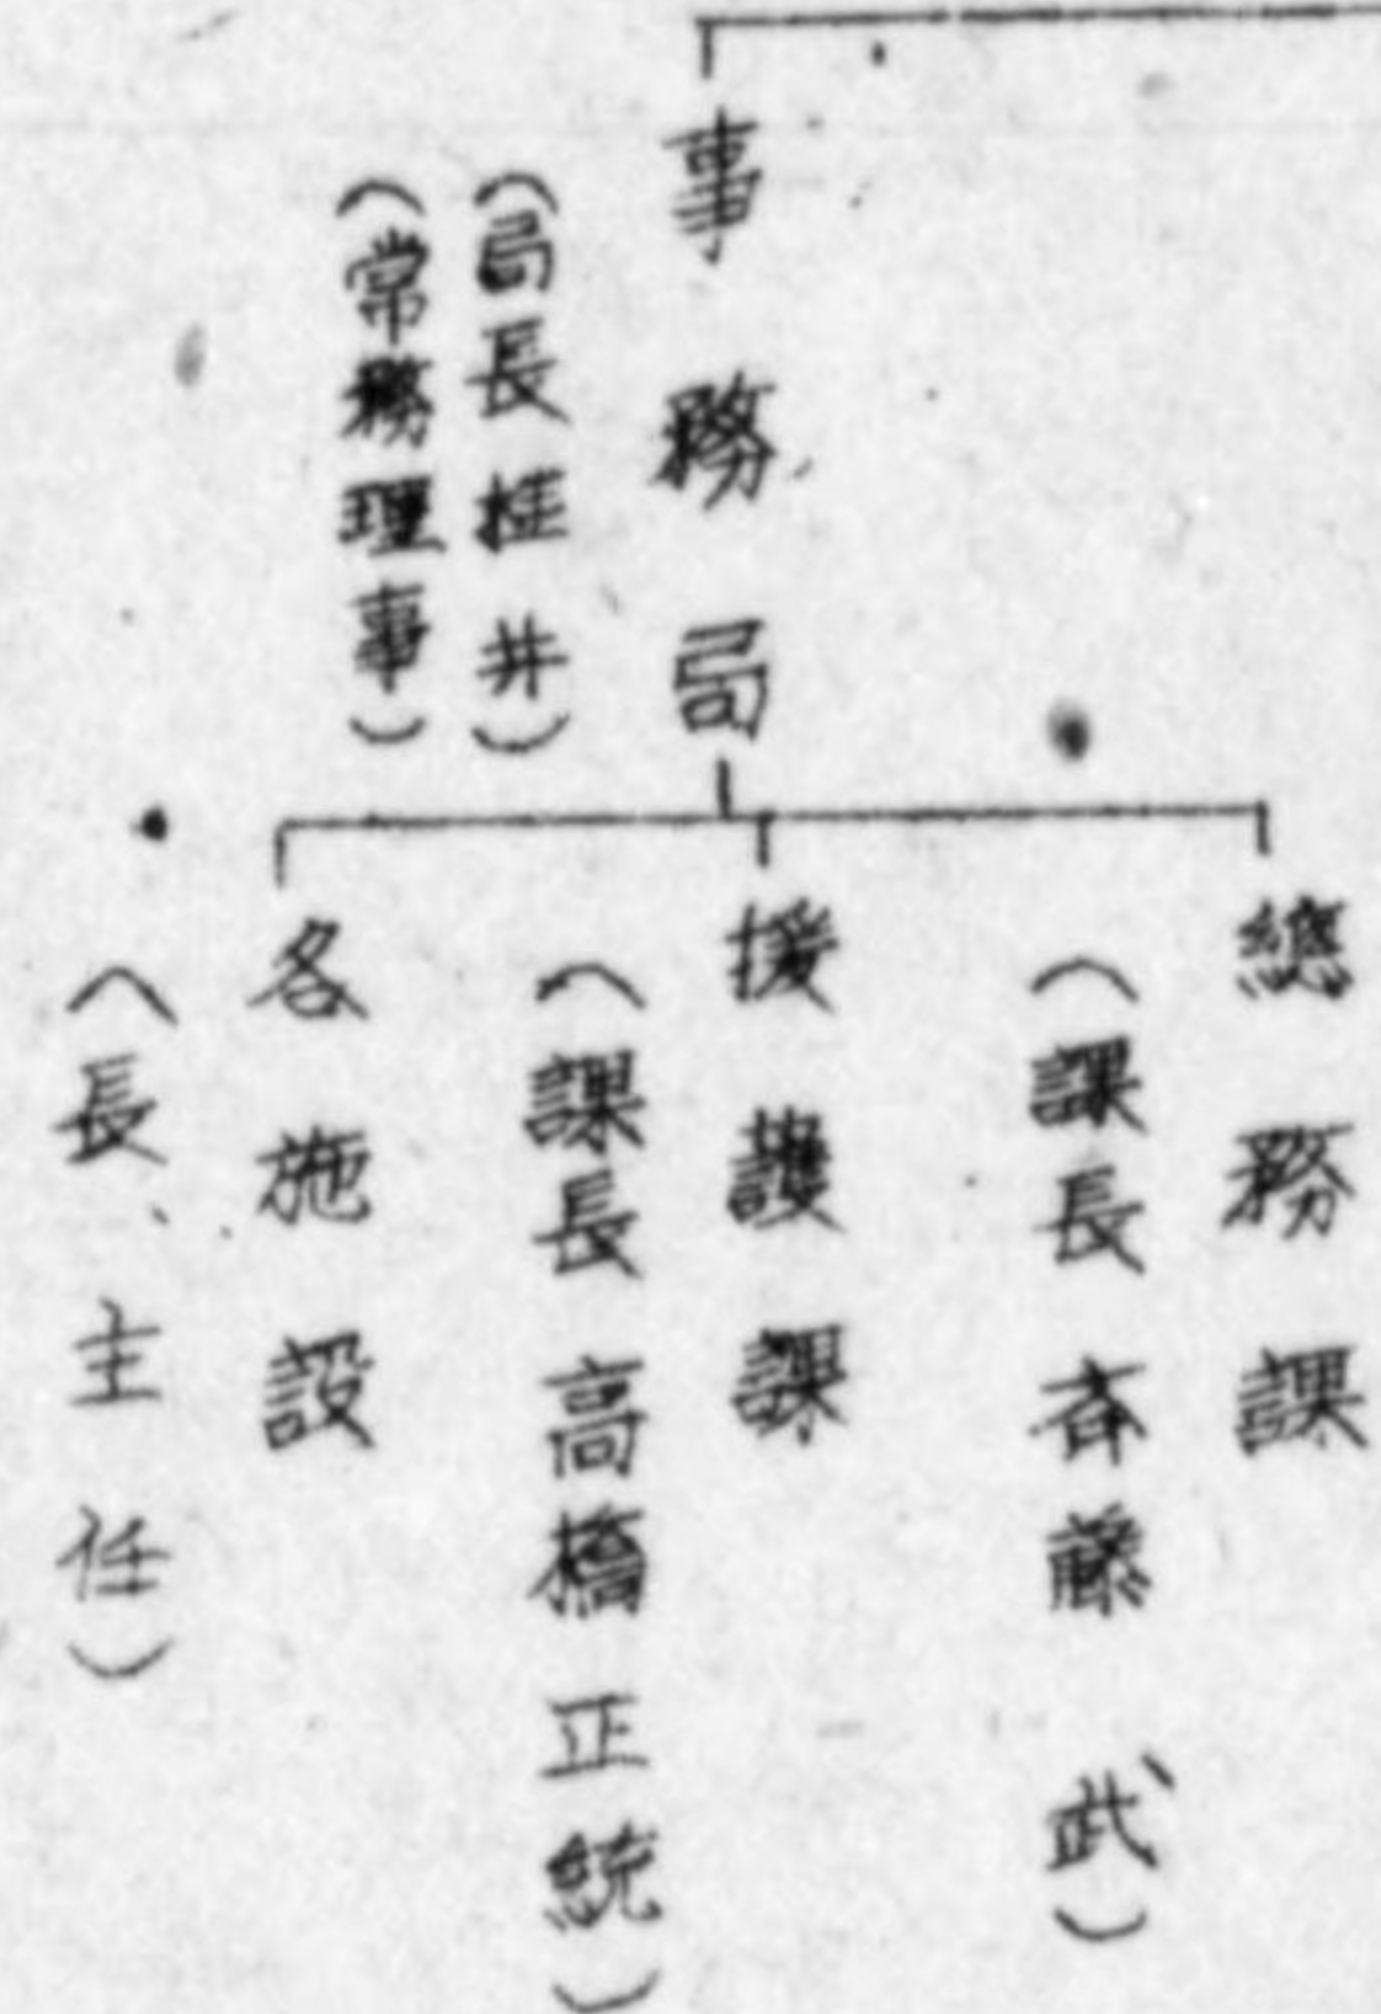 事務局
（局長桂井）
（常務理事）
總務課
（課長斉藤　武）
援護課
（課長高橋正統）
各施設
（長、主任）